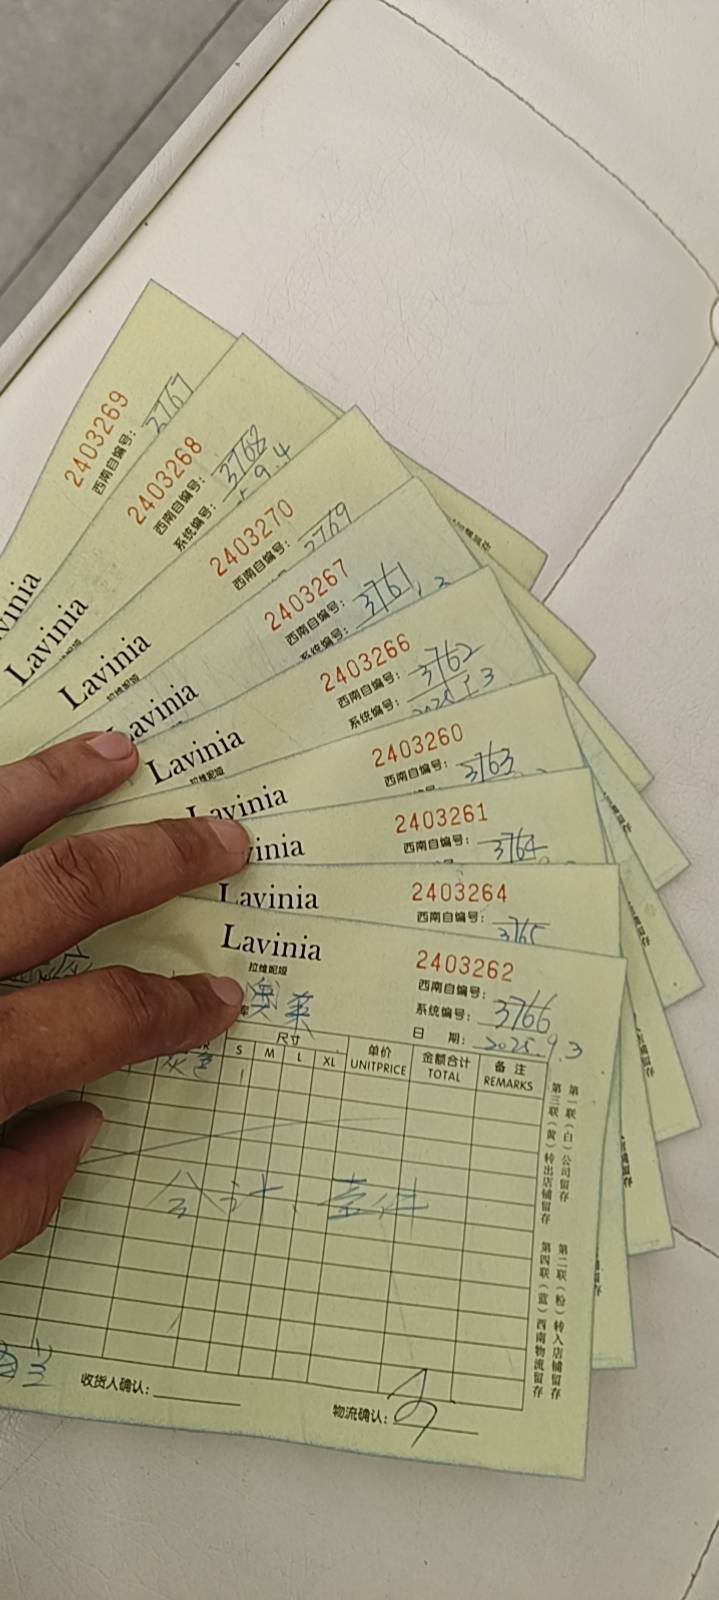 2403269
西南自编号: 3767
vinia
2403268
西南自编号: 3768
系统编号:
9.4
Lavinia
2403270
西南自编号: 3769
Lavinia
拉维妮娅
2403267
西南自编号: 3761
系统编号:
Lavinia
2403266
西南自编号: 3762
系统编号:
Lavinia
拉维妮娅
2403260
西南自编号: 3763
Lavinia
2403261
西南自编号: 3764
vinia
2403264
西南自编号: 3765
Lavinia
2403262
Lavinia
拉维妮娅
西南自编号:
系统编号: 3766
库 奥莱
日 期: 2025.9.3
尺寸 单价 金额合计 备 注
S M L XL UNITPRICE TOTAL REMARKS
灰色 1
合计: 壹件
第一联(白)公司留存
第二联(粉)转入店铺留存
第三联(黄)转出店铺留存
第四联(蓝)西南物流留存
收货人确认:
物流确认: